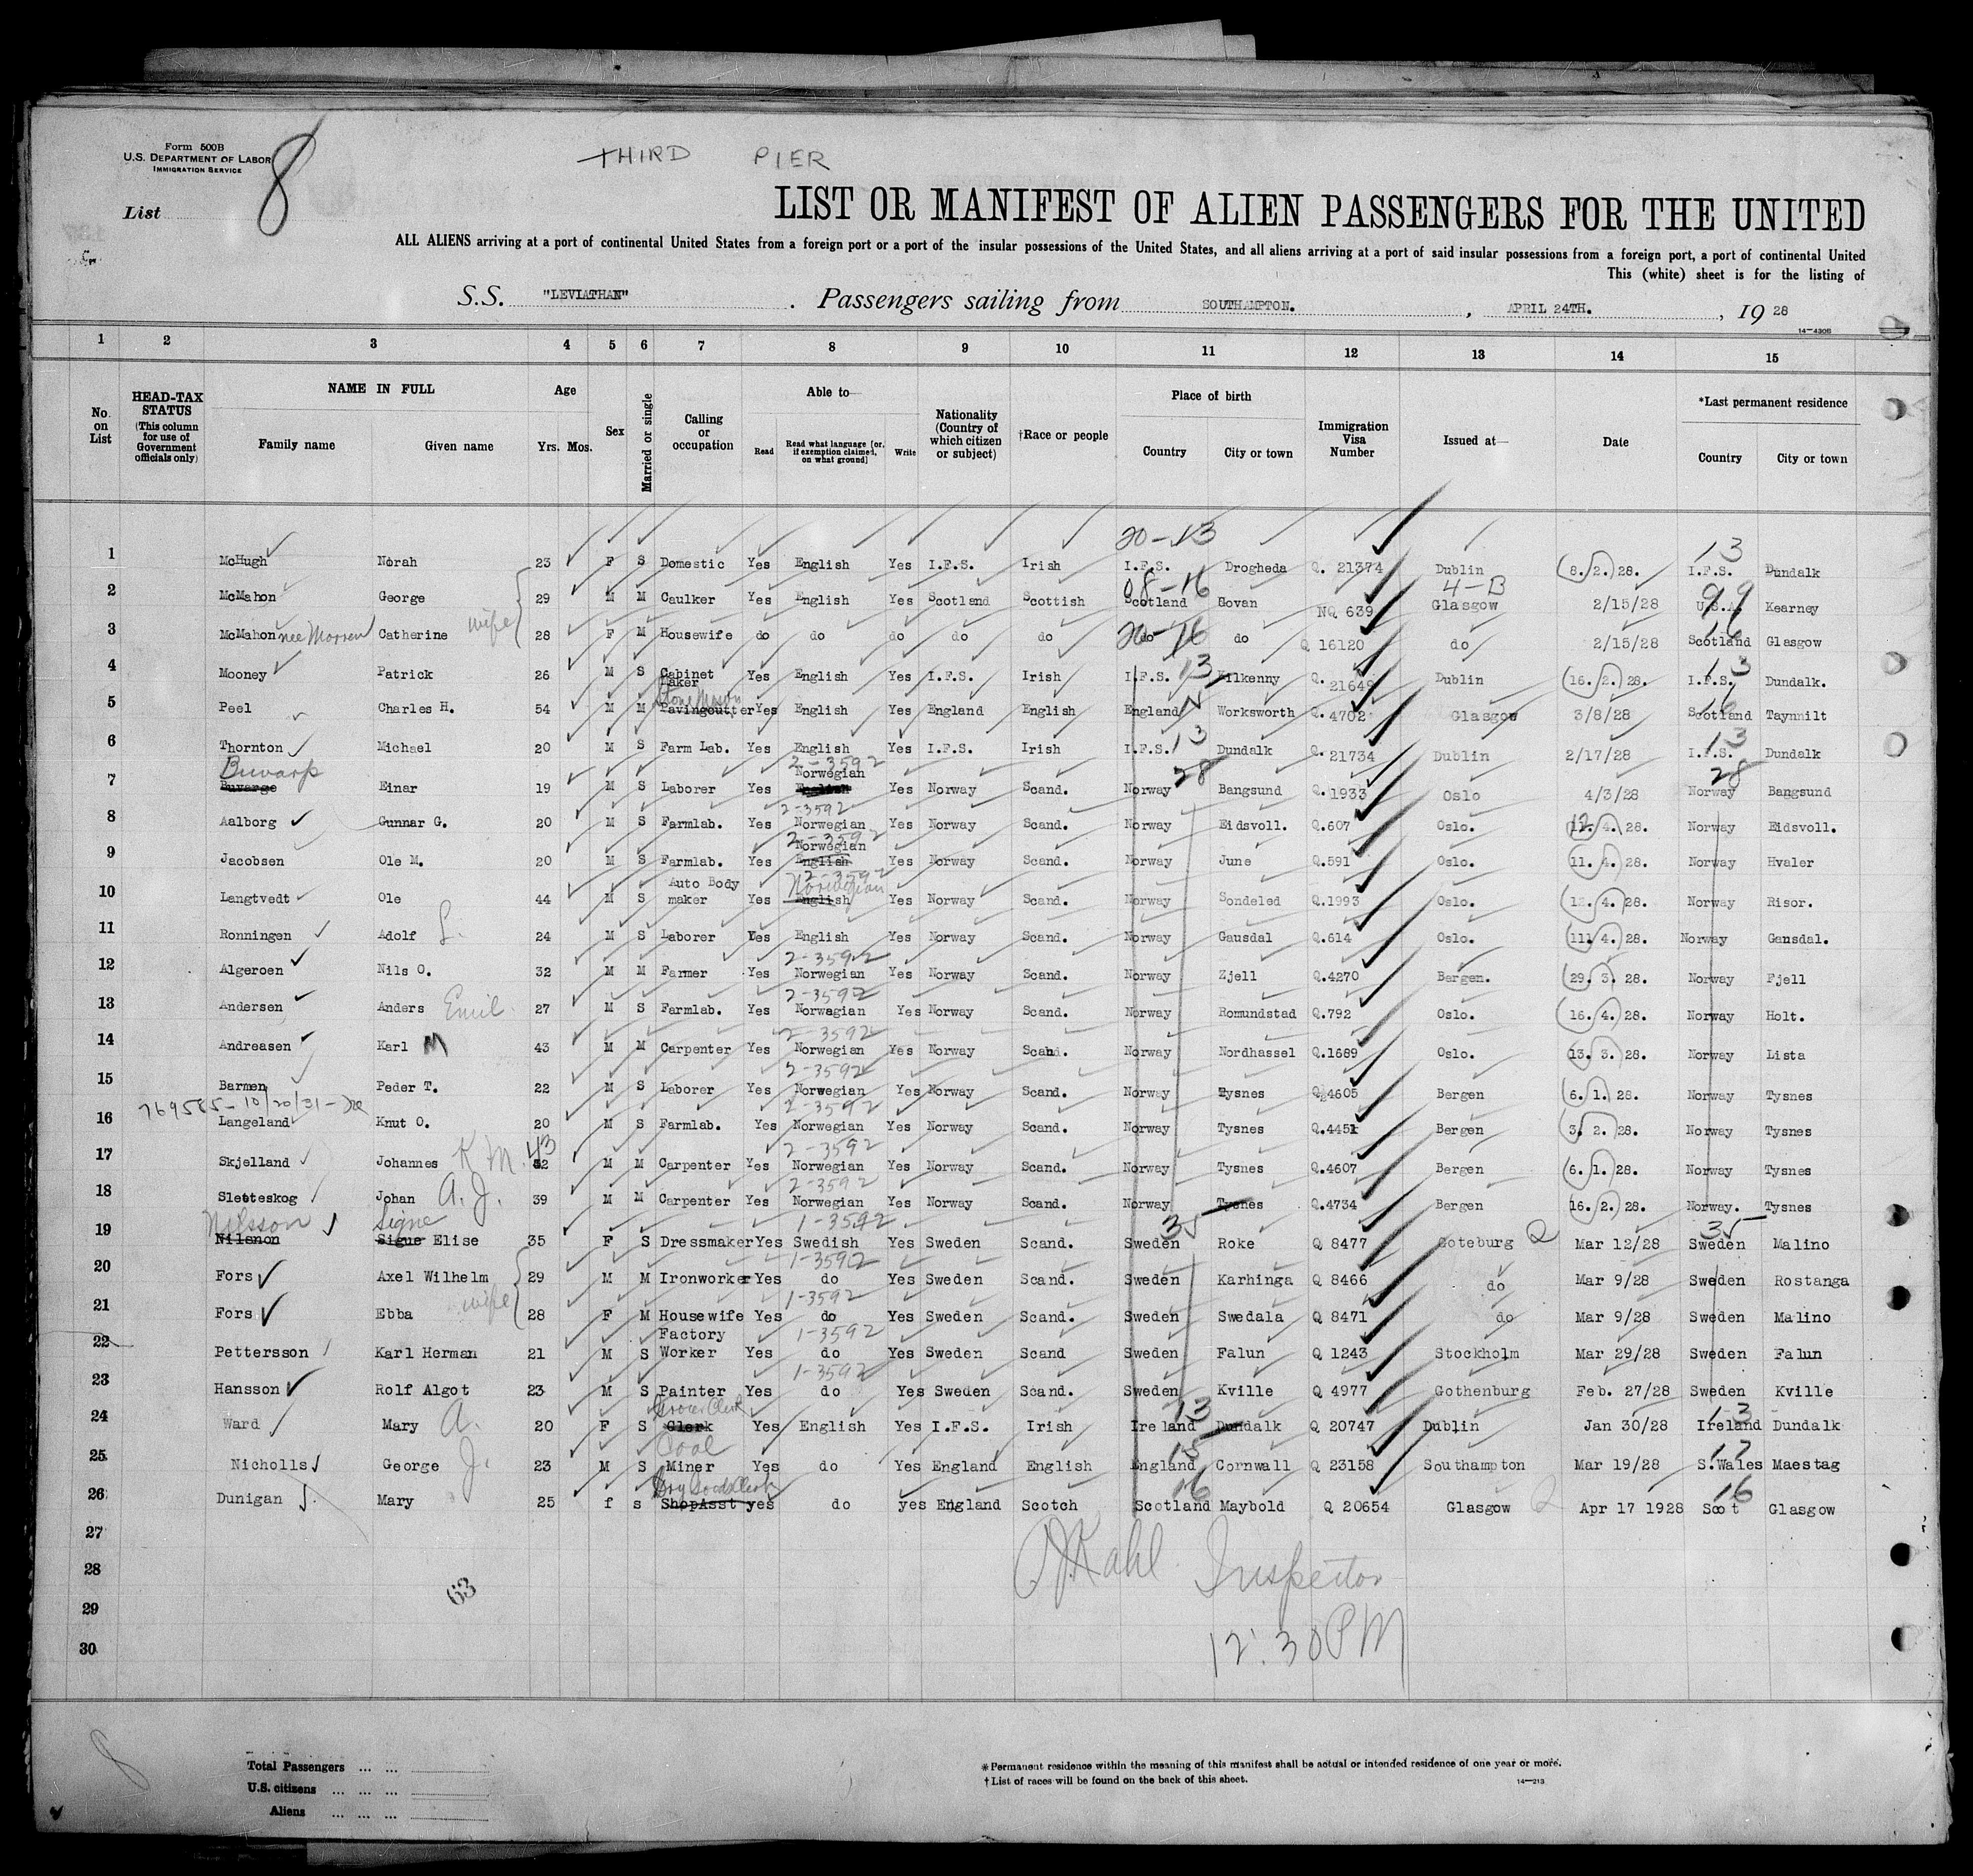 Form 500B
U.S. DEPARTMENT OF LABOR
IMMIGRATION SERVICE
List 8
THIRD PIER
LIST OR MANIFEST OF ALIEN PASSENGERS FOR THE UNITED
ALL ALIENS arriving at a port of continental United States from a foreign port or a port of the insular possessions of the United States, and all aliens arriving at a port of said insular possessions from a foreign port, a port of continental United
This (white) sheet is for the listing of
S.S. "LEVIATHAN" . Passengers sailing from SOUTHAMPTON. , APRIL 24TH. , 19 28
14—4306
1 2 3 4 5 6 7 8 9 10 11 12 13 14 15
No. on List
HEAD-TAX STATUS (This column for use of Government officials only)
NAME IN FULL Family name Given name
Age Yrs. Mos.
Sex
Married or single
Calling or occupation
Able to— Read Read what language [or, if exemption claimed, on what ground] Write
Nationality (Country of which citizen or subject)
†Race or people
Place of birth Country City or town
Immigration Visa Number
Issued at—
Date
*Last permanent residence Country City or town
20-13 13
1 McHugh Norah 23 F S Domestic Yes English Yes I.F.S. Irish I.F.S. Drogheda Q. 21374 Dublin 8. 2. 28. I.F.S. Dundalk
08-16 4-B 99
2 McMahon George 29 M M Caulker Yes English Yes Scotland Scottish Scotland Govan NQ 639 Glasgow 2/15/28 U.S.A. Kearney
3 McMahon nee Morren Catherine wife 28 F M Housewife do do do do do do 20-16 do Q 16120 do 2/15/28 Scotland 16 Glasgow
4 Mooney Patrick 26 M S Cabinet Maker Yes English Yes I.F.S. Irish I.F.S. 13 Kilkenny Q. 21649 Dublin 16. 2. 28. I.F.S. 13 Dundalk.
5 Peel Charles H. 54 M M Stone Mason Pavingcutter Yes English Yes England English England Worksworth Q. 4702 Glasgow 3/8/28 Scotland 16 Taynnilt
6 Thornton Michael 20 M S Farm Lab. Yes English Yes I.F.S. Irish I.F.S. 13 Dundalk Q. 21734 Dublin 2/17/28 I.F.S. 13 Dundalk
Buvarp 2-3592 Norwegian 28 28
7 Buvarge Einar 19 M S Laborer Yes English Yes Norway Scand. Norway Bangsund Q. 1933 Oslo 4/3/28 Norway Bangsund
2-3592
8 Aalborg Gunnar G. 20 M S Farmlab. Yes Norwegian Yes Norway Scand. Norway Eidsvoll. Q.607 Oslo. 12. 4. 28. Norway Eidsvoll.
2-3592 Norwegian
9 Jacobsen Ole M. 20 M S Farmlab. Yes English Yes Norway Scand. Norway June Q.591 Oslo. 11. 4. 28. Norway Hvaler
2-3592 Norwegian
10 Langtvedt Ole 44 M S Auto Body maker Yes English Yes Norway Scand. Norway Sondeled Q.1993 Oslo. 12. 4. 28. Norway Risor.
11 Ronningen Adolf L. 24 M S Laborer Yes English Yes Norway Scand. Norway Gausdal Q.614 Oslo. 11. 4. 28. Norway Gansdal.
2-3592
12 Algeroen Nils O. 32 M M Farmer Yes Norwegian Yes Norway Scand. Norway Zjell Q.4270 Bergen. 29. 3. 28. Norway Fjell
2-3592
13 Andersen Anders Emil 27 M S Farmlab. Yes Norwagian Yes Norway Scand. Norway Romundstad Q.792 Oslo. 16. 4. 28. Norway Holt.
2-3592
14 Andreasen Karl M 43 M M Carpenter Yes Norwegian Yes Norway Scand. Norway Nordhassel Q.1689 Oslo. 13. 3. 28. Norway Lista
2-3592
15 Barmen Peder T. 22 M S Laborer Yes Norwegian Yes Norway Scand. Norway Tysnes Q.4605 Bergen 6. 1. 28. Norway Tysnes
769585-10/20/31 2-3592
16 Langeland Knut O. 20 M S Farmlab. Yes Norwegian Yes Norway Scand. Norway Tysnes Q.4451 Bergen 3. 2. 28. Norway Tysnes
2-3592
17 Skjelland Johannes K M. 43 42 M M Carpenter Yes Norwegian Yes Norway Scand. Norway Tysnes Q.4607 Bergen 6. 1. 28. Norway Tysnes
2-3592
18 Sletteskog Johan A. J. 39 M M Carpenter Yes Norwegian Yes Norway Scand. Norway Tysnes Q.4734 Bergen 16. 2. 28. Norway. Tysnes
Nilsson Signe 1-3592 35 35
19 Nilsnon Sigue Elise 35 F S Dressmaker Yes Swedish Yes Sweden Scand. Sweden Roke Q 8477 Goteburg Mar 12/28 Sweden Malino
1-3592
20 Fors Axel Wilhelm 29 M M Ironworker Yes do Yes Sweden Scand. Sweden Karhinga Q 8466 do Mar 9/28 Sweden Rostanga
1-3592
21 Fors Ebba wife 28 F M Housewife Yes do Yes Sweden Scand. Sweden Swedala Q 8471 do Mar 9/28 Sweden Malino
1-3592
22 Pettersson Karl Herman 21 M S Factory Worker Yes do Yes Sweden Scand Sweden Falun Q 1243 Stockholm Mar 29/28 Sweden Falun
1-3592
23 Hansson Rolf Algot 23 M S Painter Yes do Yes Sweden Scand. Sweden Kville Q 4977 Gothenburg Feb. 27/28 Sweden Kville
Grocer Clerk 13 13
24 Ward Mary A. 20 F S Clerk Yes English Yes I.F.S. Irish Ireland Dundalk Q 20747 Dublin Jan 30/28 Ireland Dundalk
Coal 15 17
25 Nicholls George J. 23 M S Miner Yes do Yes England English England Cornwall Q 23158 Southampton Mar 19/28 S.Wales Maestag
Dry Goods Clerk 16 16
26 Dunigan Mary 25 f s ShopAsst yes do yes England Scotch Scotland Maybold Q 20654 Glasgow Apr 17 1928 Scot Glasgow
27
28
29
30
63
Kahl Inspector
12:30 PM
8
Total Passengers ... ...
U.S. citizens ... ... ...
Aliens ... ... ...
*Permanent residence within the meaning of this manifest shall be actual or intended residence of one year or more.
†List of races will be found on the back of this sheet.
14—213